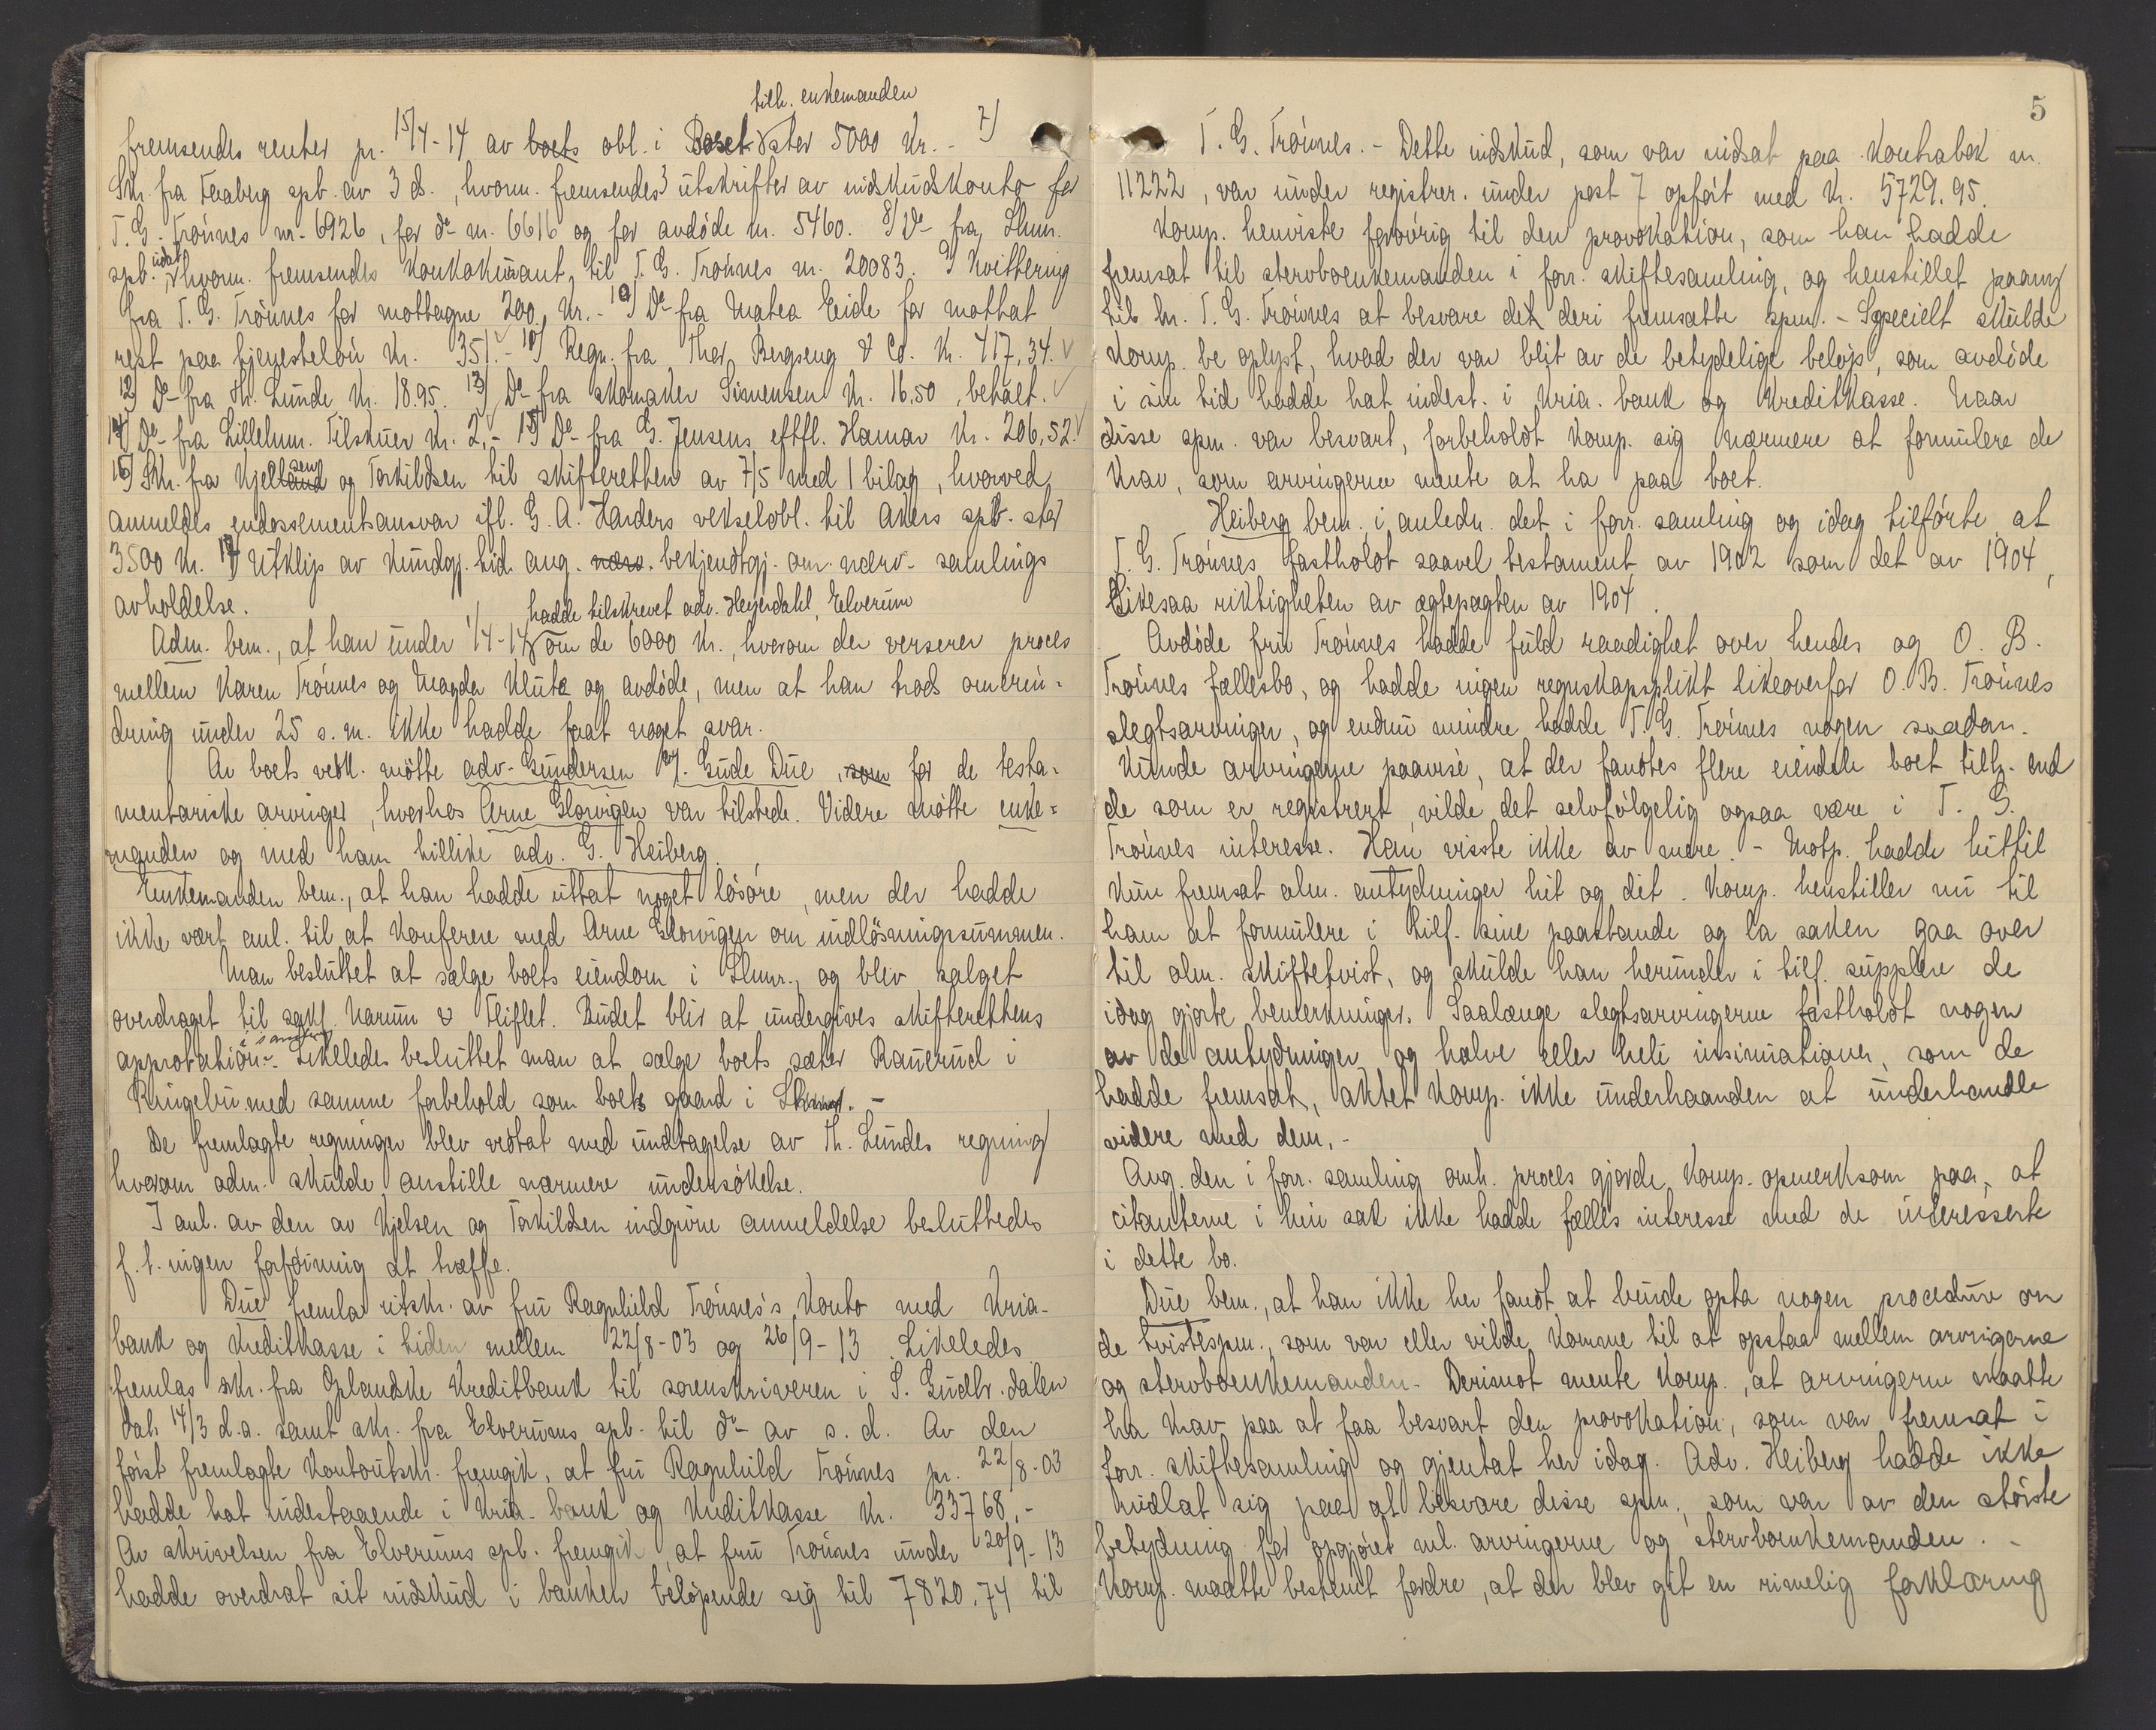 tilh. enkemanden
fremsendes renter pr. 15/4-14 av boets obl. i Boset sæter 5000 Kr. - 7)
Skr. fra Faaberg spb. av 3 ds., hvorm. fremsendes 3 utskrifter av indskudskonto for
T. G. Trønnes nr. 6926, for do nr. 6616 og for avdøde nr. 5460. 8) Do fra Lhmr.
spb. hvorm. fremsendes Kontokurant til T. G. Trønnes nr. 20083. 9) Kvittering
fra T. G. Trønnes for mottagne 200 Kr. - 10) Do fra Matea Eide for mottat
rest paa tjenesteløn Kr. 351. - 11) Regn. fra Thor Bergseng & Co. Kr. 417,34. ✓
12) Do fra Th. Lunde Kr. 18.95. 13) Do fra skomaker Simensen Kr. 16,50, betalt. ✓
14) Do fra Lillehm. Tilskuer Kr. 2,- 15) Do fra G. Jensens eftfl. Hamar Kr. 206,52. ✓
16) Skr. fra Kjelland sen og Torkildsen til skifteretten av 7/5 med 1 bilag, hvorved
anmeldes endossementsansvar ifl. G. A. Harders vekselobl. til Akers spb. stor
3500 Kr. 17) Utklip av Kundgj. tid. ang. nærv. bekjendtgj. om nærv. samlings
avholdelse.
hadde tilskrevet adv. Heyerdahl, Elverum
Adm. bem., at han under 1/4-14 om de 6000 Kr., hvorom der verserer proces
mellem Karen Trønnes og Magda Klute og avdøde, men at han trods omerin-
dring under 25 s. m. ikke hadde faat noget svar.
Av boets vedk. møtte adv. Gundersen v/ J. Gude Due, som for de testa-
mentariske arvinger, hvorhos Arne Glorvigen var tilstede. Videre møtte enke-
manden og med ham tillike adv. G. Heiberg.
Enkemanden bem., at han hadde uttat noget løsøre, men der hadde
ikke vært anl. til at konferere med Arne Glorvigen om indløsningssummen.
Man besluttet at sælge boets eiendom i Lhmr., og blev salget
overdraget til sakf. Narum & Fliflet. Budet blir at undergives skifterettens
approbation. Likeledes besluttet man at sælge boets sæter Rauerud i
Ringebu med samme forbehold som boets gaard i Lhmr. -
De fremlagte regninger blev vedtat med undtagelse av Th. Lundes regning
hvorom adm. skulde anstille nærmere undersøkelse.
I anl. av den av Kjelsen og Torkildsen indgivne anmeldelse besluttedes
f. t. ingen forføining at træffe.
Due fremla utskr. av fru Ragnhild Trønnes's Konto med Kria.
bank og Kreditkasse i tiden mellem 22/8-03 og 26/9-13. Likeledes
fremlas skr. fra Oplandske Kreditbank til sorenskriveren i S. Gudbr. dalen
dat. 14/3 d.a. samt skr. fra Elverums spb. til do av s. d. Av den
først fremlagte kontoutskr. fremgik, at fru Ragnhild Trønnes pr. 22/8-03
hadde hat indestaaende i Kria. bank og Kreditkasse Kr. 33768,-
Av skrivelsen fra Elverums spb. fremgik, at fru Trønnes under 20/9-13
hadde overdrat sit indskud i banken beløpende sig til 7820.74 til
5
T. G. Trønnes. - Dette indskud, som var indsat paa Kontrabok nr.
11222, var under registrer. under post 7 opført med Kr. 5729.95.
Komp. henviste forøvrig til den provokation, som han hadde
fremsat til stervboenkemanden i forr. skiftesamling, og henstillet paany
til hr. T. G. Trønnes at besvare det deri fremsatte spm. - Specielt skulde
Komp. be oplyst, hvad der var blit av de betydelige beløp, som avdøde
i sin tid hadde hat indest. i Kria. bank og Kreditkasse. Naar
disse spm. var besvart, forbeholdt Komp. sig nærmere at formulere de
Krav, som arvingerne mente at ha paa boet.
Heiberg bem. i anledn. det i forr. samling og idag tilførte, at
T. G. Trønnes fastholdt saavel testament av 1902 som det av 1904,
Likesaa riktigheten av ægtepagten av 1904.
Avdøde fru Trønnes hadde fuld raadighet over hendes og O. B.
Trønnes fællesbo, og hadde ingen regnskapsplikt likeoverfor O. B. Trønnes
slegtsarvinger, og endnu mindre hadde T. G. Trønnes nogen saadan.
Kunde arvingerne paavise, at der fandtes flere eiendele boet tilh. end
de som er registrert, vilde det selvfølgelig ogsaa være i T. G.
Trønnes interesse. Han visste ikke av mere. - Motp. hadde hittil
kun fremsat alm. antydninger hit og dit. Komp. henstiller nu til
ham at formulere i tilf. sine paastande og la saken gaa over
til alm. skiftetvist, og skulde han herunder i tilf. supplere de
idag gjorte bemerkninger. Saalænge slegtsarvingerne fastholdt nogen
av de antydninger og halve eller hele insinuationer, som de
hadde fremsat, aktet Komp. ikke underhaanden at underhandle
videre med dem. -
Ang. den i forr. samling omh. proces gjorde Komp. opmerksom paa, at
citanterne i hin sak ikke hadde fælles interesse med de interesserte
i dette bo.
Due bem., at han ikke her fandt at burde opta nogen procedure om
de tvistespm., som var eller vilde komme til at opstaa mellem arvingerne
og stervboenkemanden. Derimot mente Komp., at arvingerne maatte
ha krav paa at faa besvart den provokation, som var fremsat i
forr. skiftesamling og gjentat her idag. Adv. Heiberg hadde ikke
indlat sig paa at besvare disse spm., som var av den største
betydning for opgjøret ml. arvingerne og stervboenkemanden. -
Komp. maatte bestemt fordre, at der blev git en rimelig forklaring